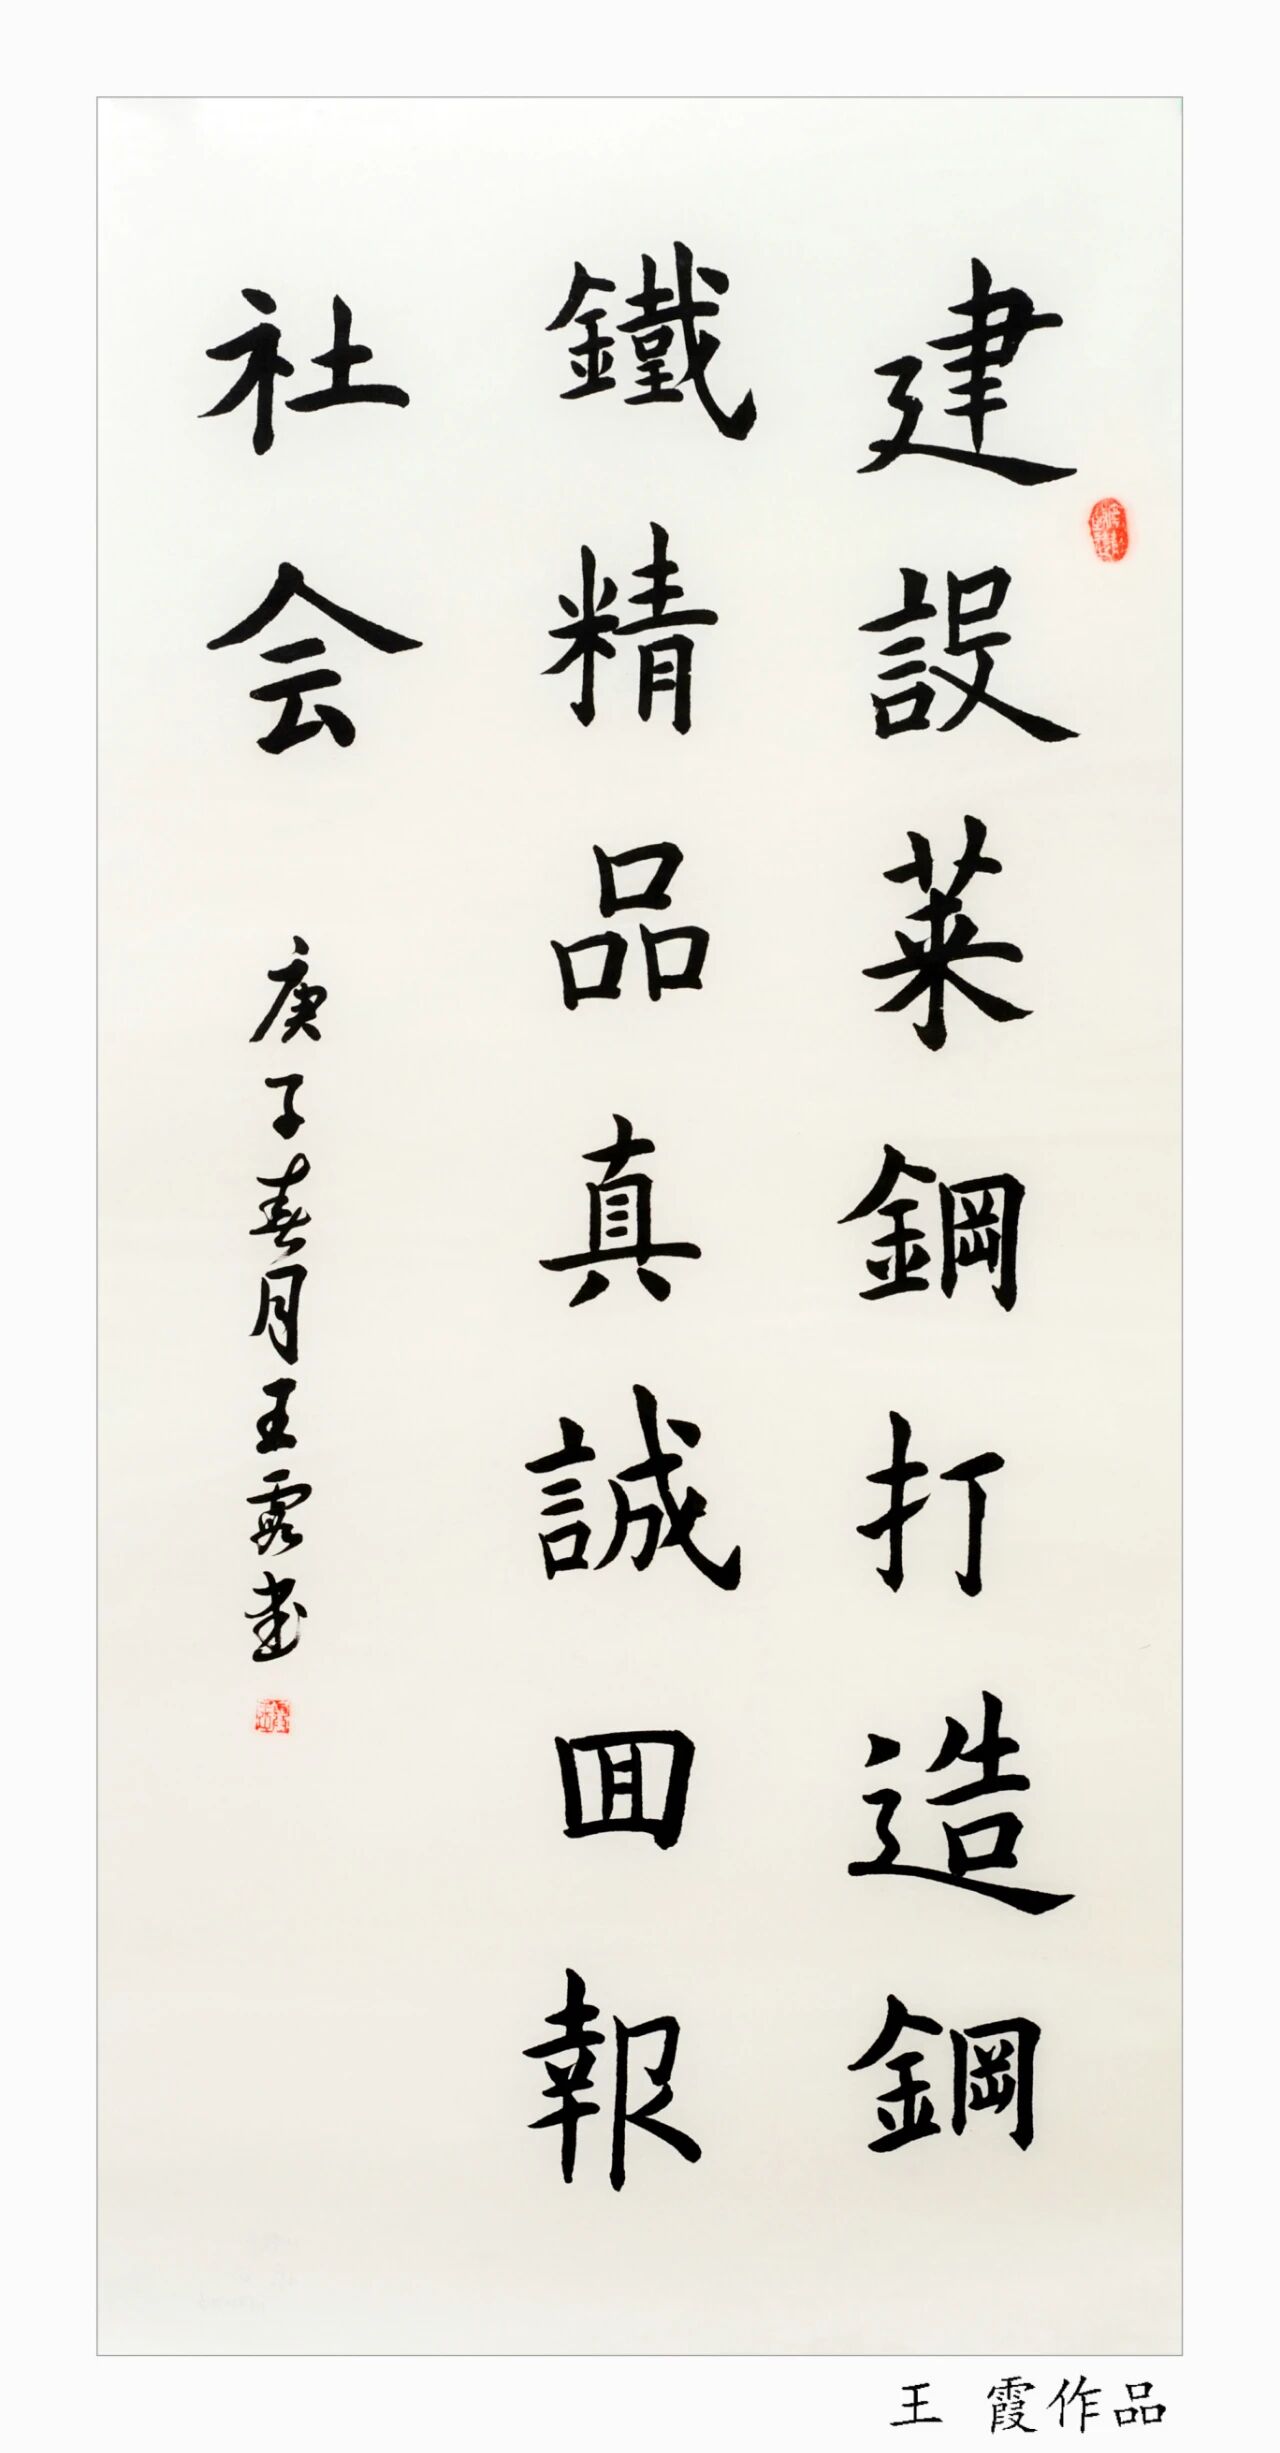 建設萊鋼打造鋼
鐵精品真誠囬報
社会
庚子春月王霞書
王 霞作品